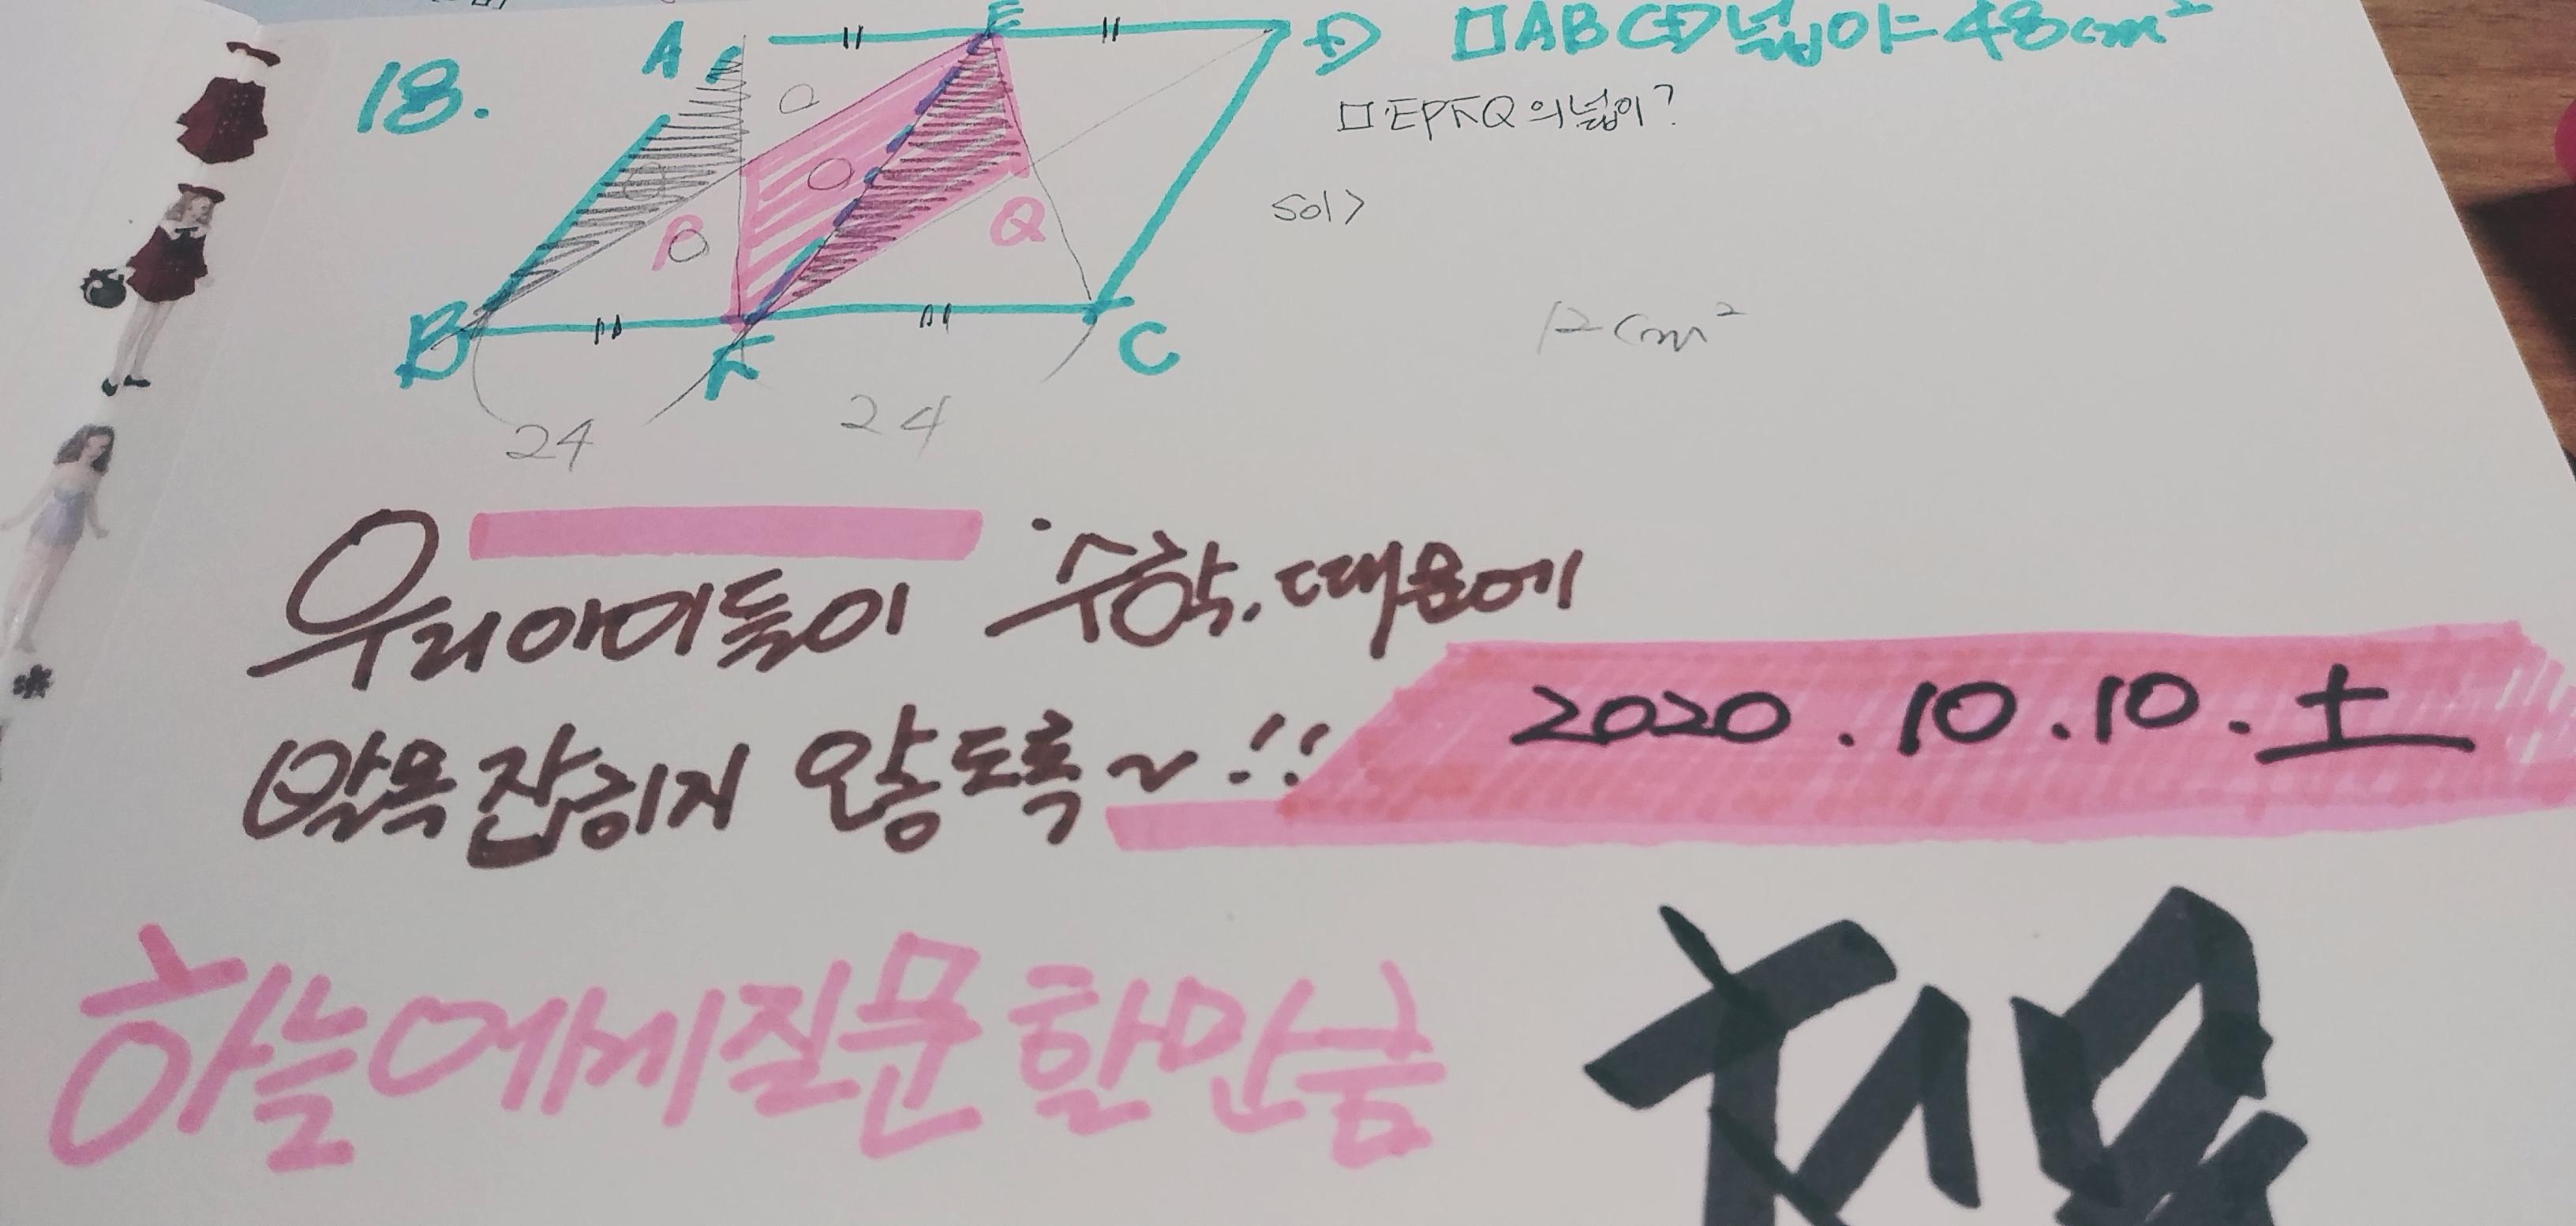 18.
A
E
D
□ABCD넓이=48cm²
□EPFQ의넓이?
P
Q
sol>
B
F
C
12cm²
24
24
우리아이들이 수학.때문에
발목잡히지 않도록~!!
2020.10.10.土
하늘에게질문할만큼